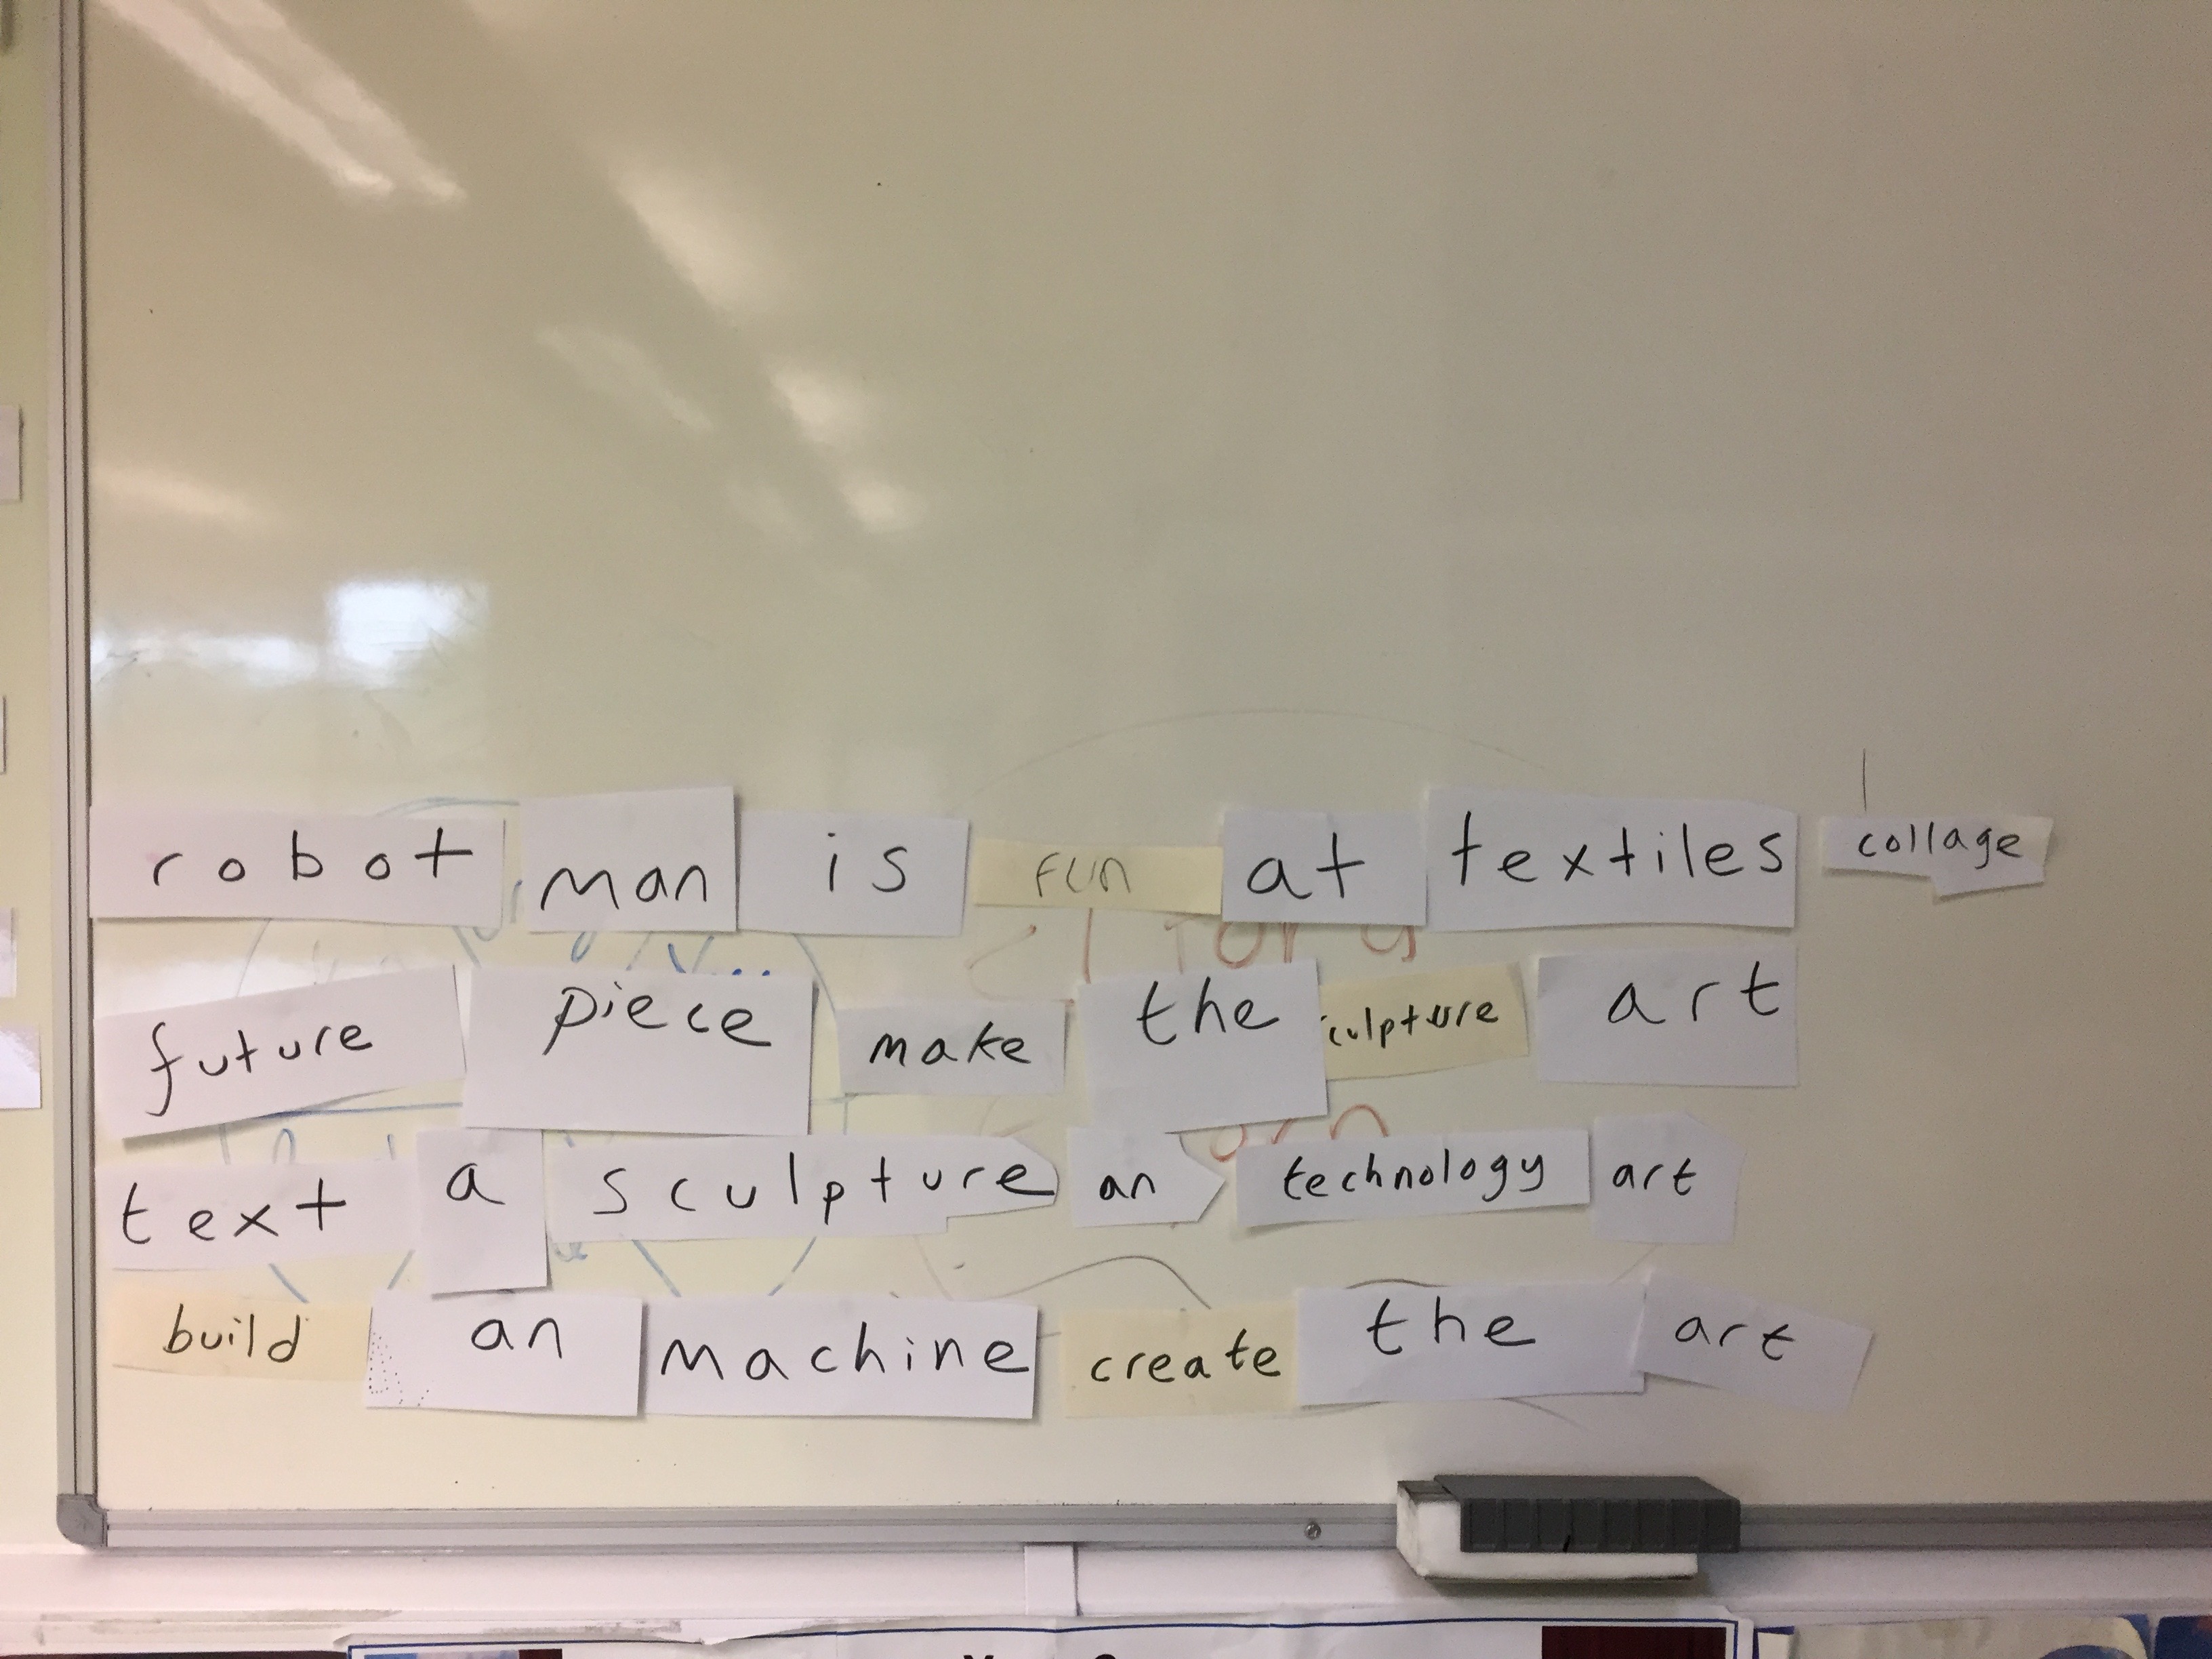 robot man is fun at textiles collage
future piece make the sculpture art
text a sculpture an technology art
build an machine create the art